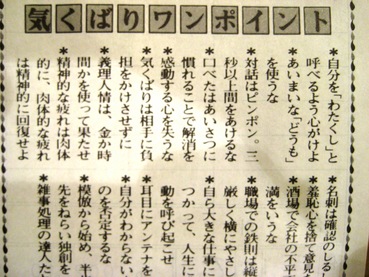 気くばりワンポイント
*自分を「わたくし」と
呼べるよう心がけよ
*あいまいな「どうも」
を使うな
*対話はピンポン。三
秒以上間をあけるな
*口べたはあいさつに
慣れることで解消を
*感動する心を失うな
*気くばりは相手に負
担をかけさせずに
*義理人情は、金か時
間かを使って果たせ
*精神的な疲れは肉体
的に、肉体的な疲れ
は精神的に回復せよ
*名刺は確認のしる
*羞恥心を捨て意見
*酒場で会社の不平
満をいうな
*職場での鉄則は縦
厳しく横にやさ
*自ら大きな仕事に
つかって、人生に
動を呼び起こせ
*耳目にアンテナを
*自分がわからない
のを否定するな
*模倣から始め、半
先をねらい独創を
*雑事処理の達人た